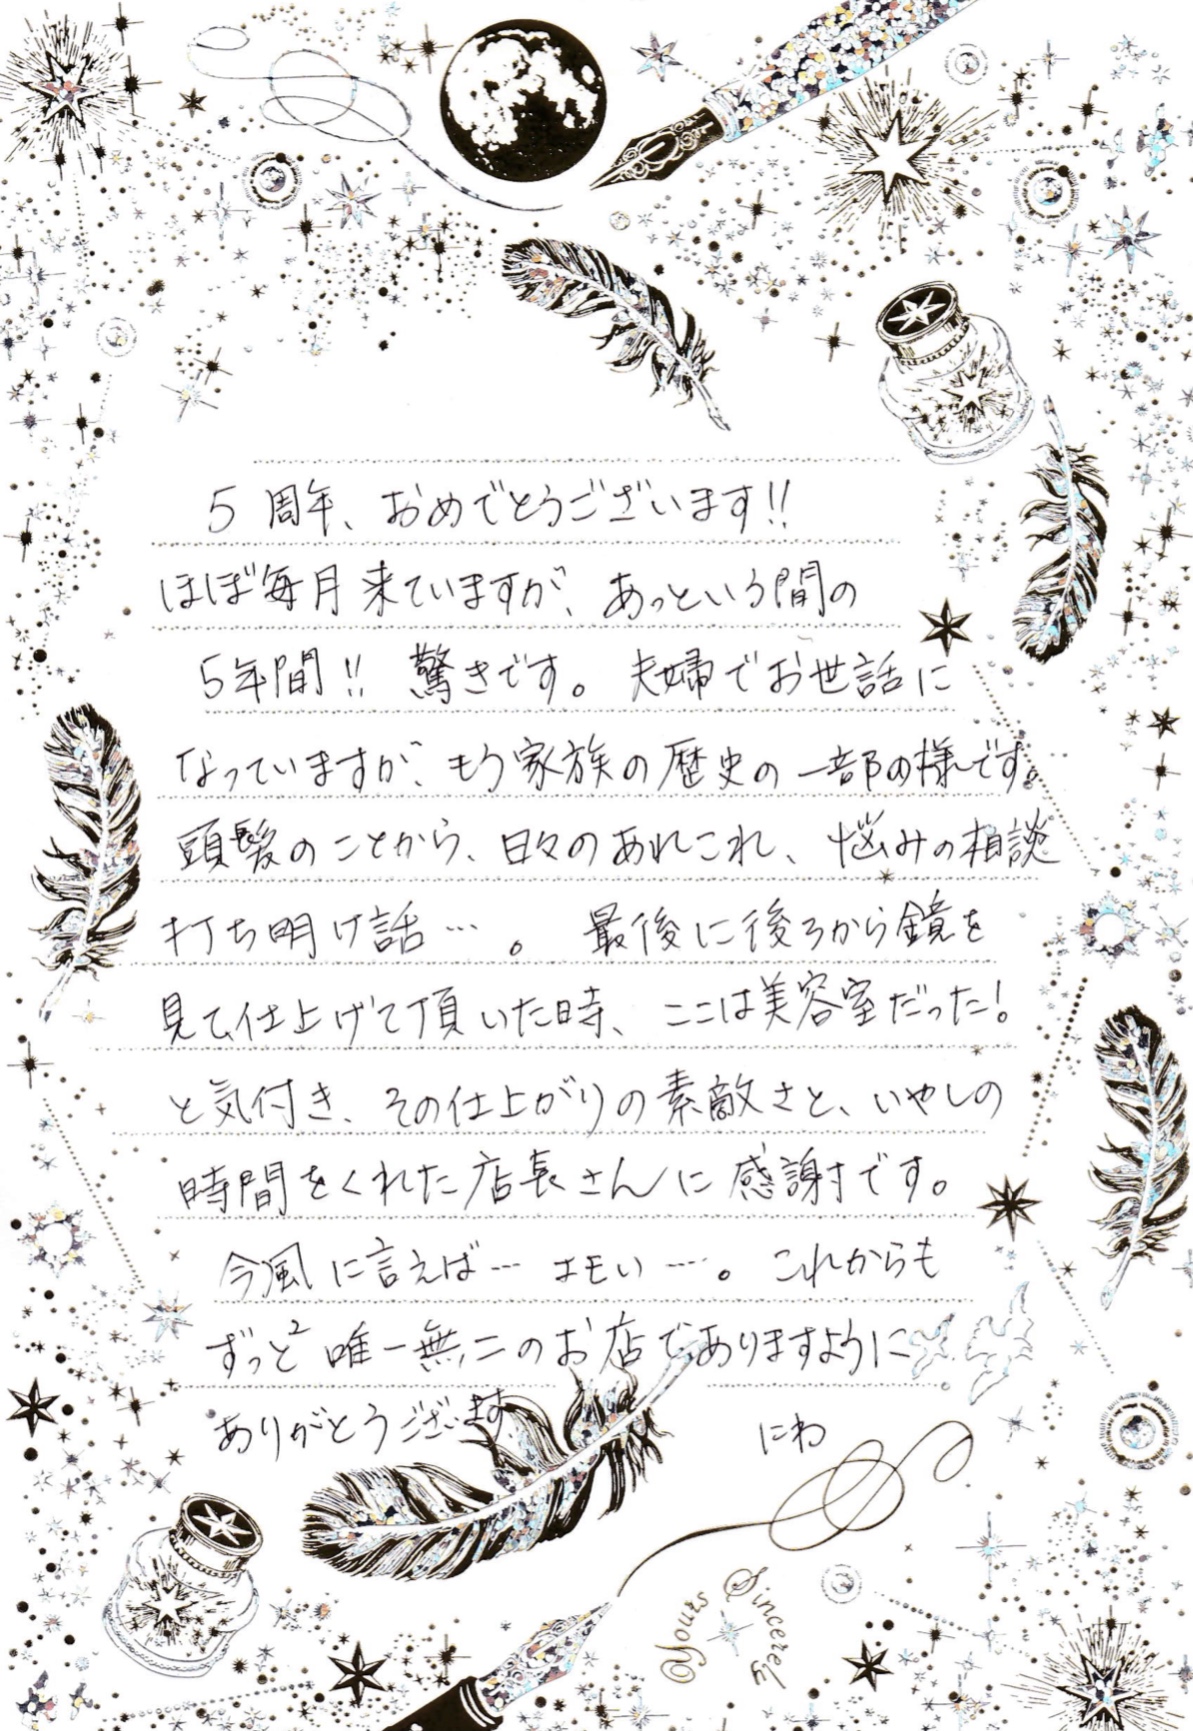 5周年、おめでとうございます!!
ほぼ毎月来ていますが、あっという間の
5年間!! 驚きです。夫婦でお世話に
なっていますが、もう家族の歴史の一部の様です。
頭髪のことから、日々のあれこれ、悩みの相談
打ち明け話…。最後に後ろから鏡を
見て仕上げて頂いた時、ここは美容室だった!
と気付き、その仕上がりの素敵さと、いやしの
時間をくれた店長さんに感謝です。
今風に言えば…エモい…。これからも
ずっと² 唯一無二のお店でありますように
ありがとうございます にわ
Yours Sincerely